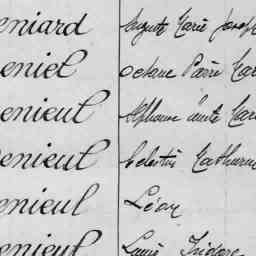 eniard Auguste Marie Joseph
eniel Octave Pierre Mar
enieul Alphonse Mar
enieul Célestin Catherine
enieul Léon
enieul Louis Isidore